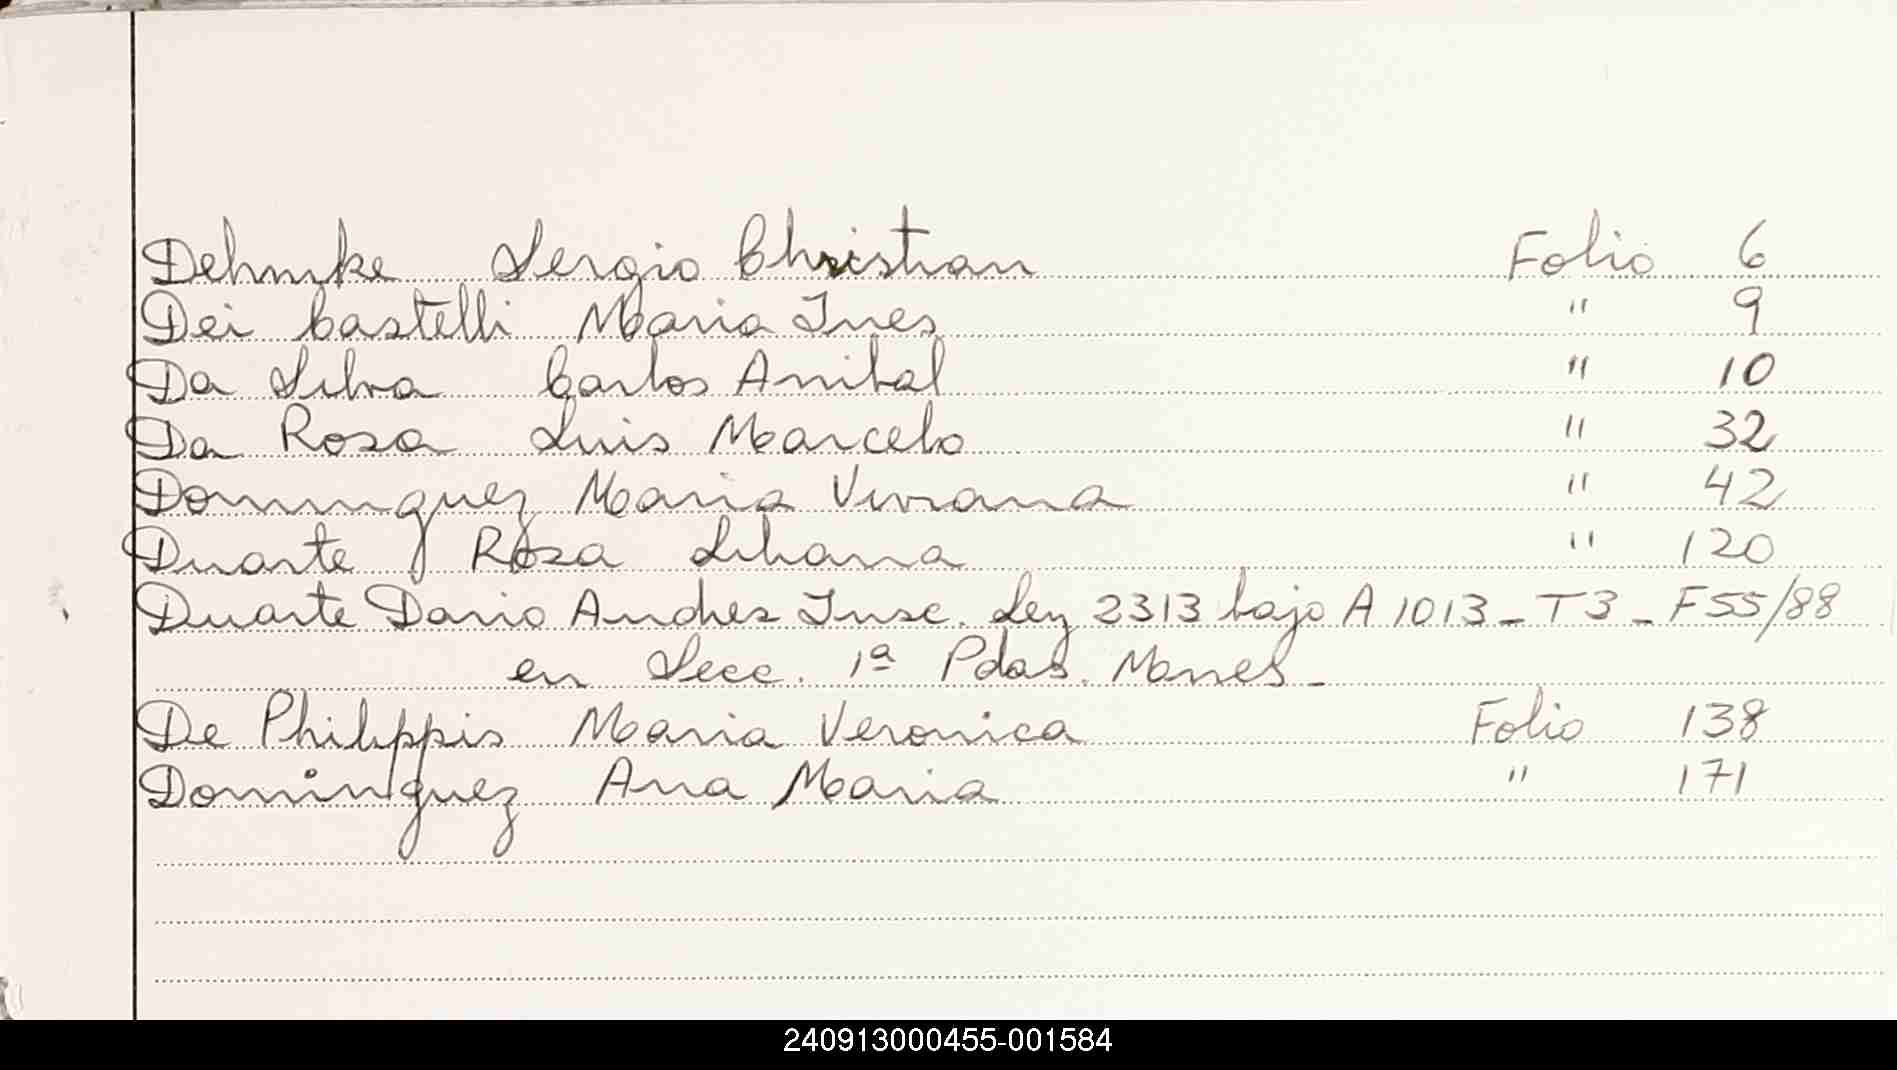 Dehmke Sergio Christian Folio 6
Dei Castelli Maria Ines " 9
Da Silva Carlos Anibal " 10
Da Rosa Luis Marcelo " 32
Dominguez Maria Viviana " 42
Duarte Rosa Liliana " 120
Duarte Dario Andres Insc. Ley 2313 bajo A 1013 - T3 - F55/88
en Secc. 1ª Pdas.
De Philippis Maria Veronica Folio 138
Dominguez Ana Maria " 171
240913000455-001584